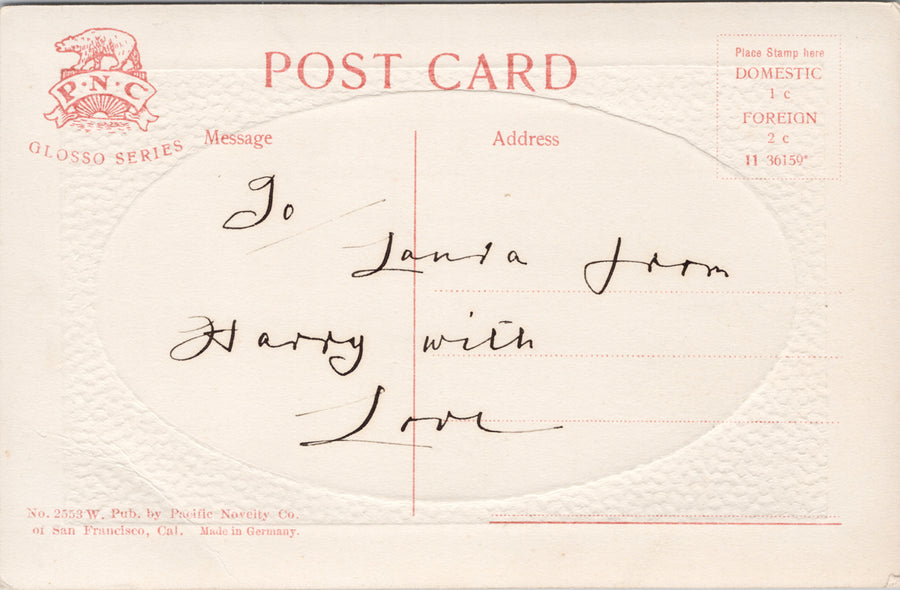 POST CARD
P·N·C
GLOSSO SERIES
Place Stamp here
DOMESTIC
1 c
FOREIGN
2 c
11 36159*
Message
Address
To
from
Harry with
Love
No. 2553 W. Pub. by Pacific Novelty Co.
of San Francisco, Cal. Made in Germany.